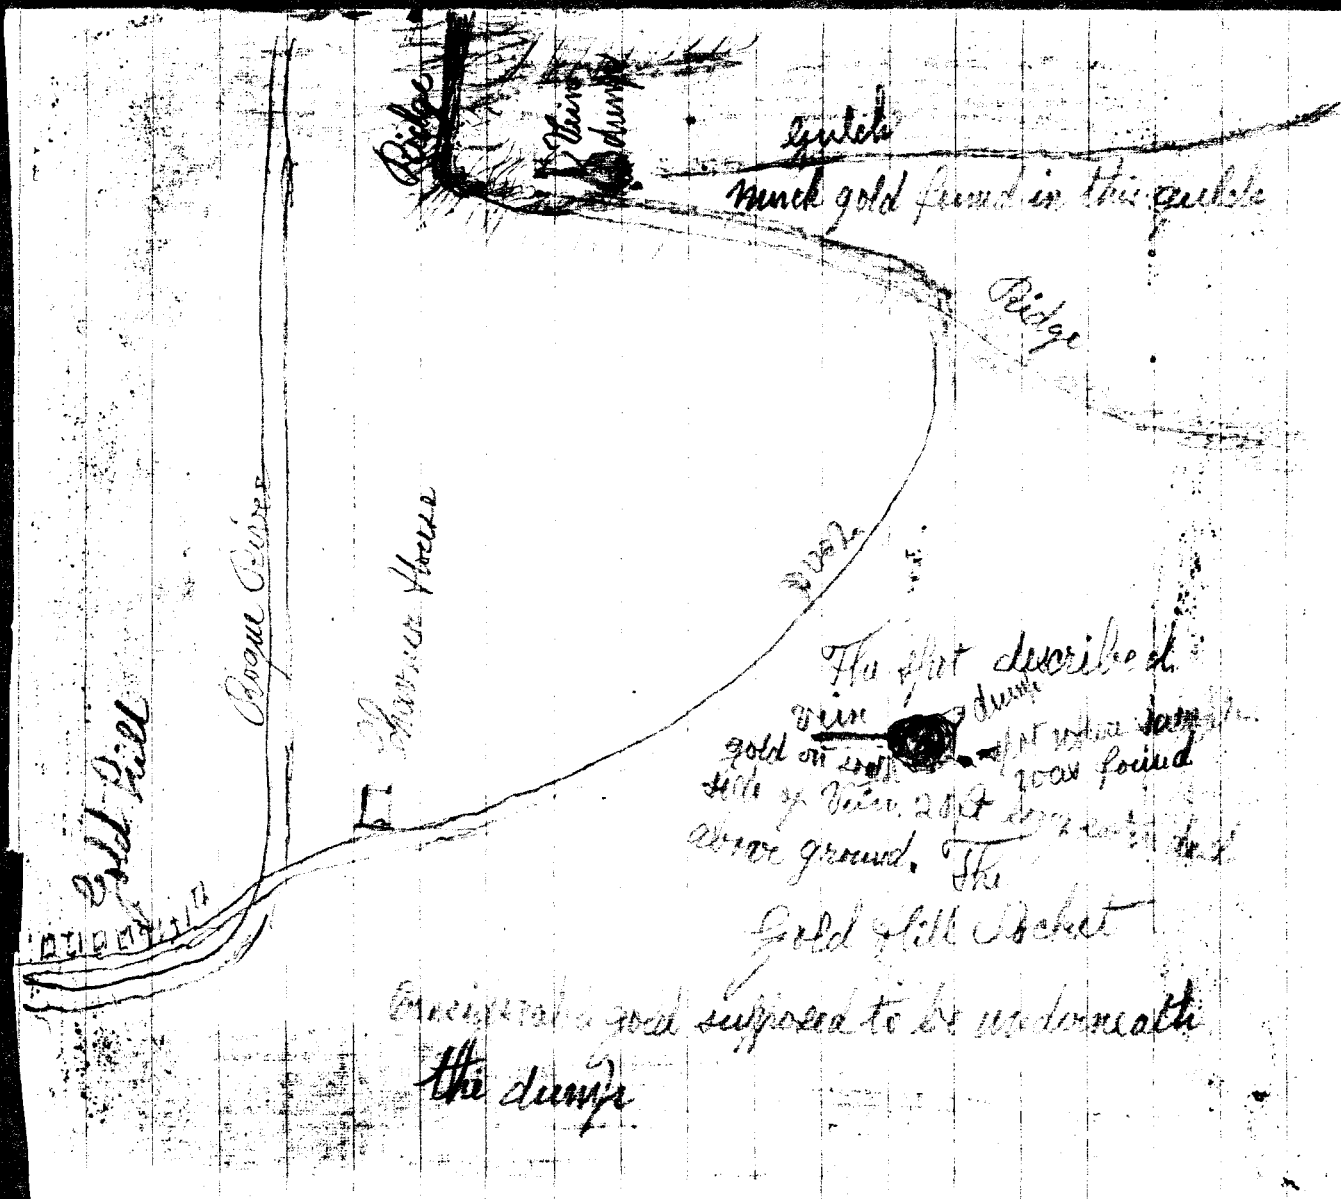 Ridge
Vein
dump
Gulch
Much gold found in this gulch
Ridge
Rogue River
House
Road
Gold Hill
The spot described
Vein
dump
gold on
spot where sample
was found
side of Vein. 20 ft
above ground. The
Gold Hill Pocket
gold supposed to be underneath
the dump